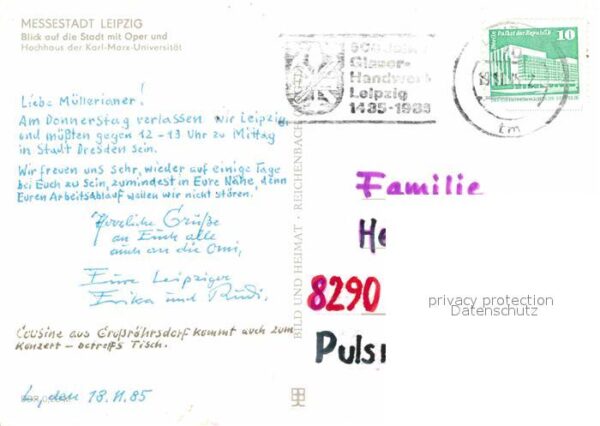 MESSESTADT LEIPZIG
Blick auf die Stadt mit Oper und
Hochhaus der Karl-Marx-Universität
Liebe Müllerianer!
Am Donnerstag verlassen wir Leipzig
und müßten gegen 12-13 Uhr zu Mittag
in Stadt Dresden sein.
Wir freuen uns sehr, wieder auf einige Tage
bei Euch zu sein, zumindest in Eure Nähe, denn
Euren Arbeitsablauf wollen wir nicht stören.
Herzliche Grüße
an Euch alle
auch an die Omi,
Eure Leipziger
Erika und Rudi.
Cousine aus Großröhrsdorf kommt auch zum
Konzert – betreffs Tisch.
18.11.85
BILD UND HEIMAT · REICHENBACH
500 Jahre
Glaser-
Handwerk
Leipzig
1485-1985
Berlin Palast der Republik
10
tm
Familie
He
8290
Puls
privacy protection
Datenschutz